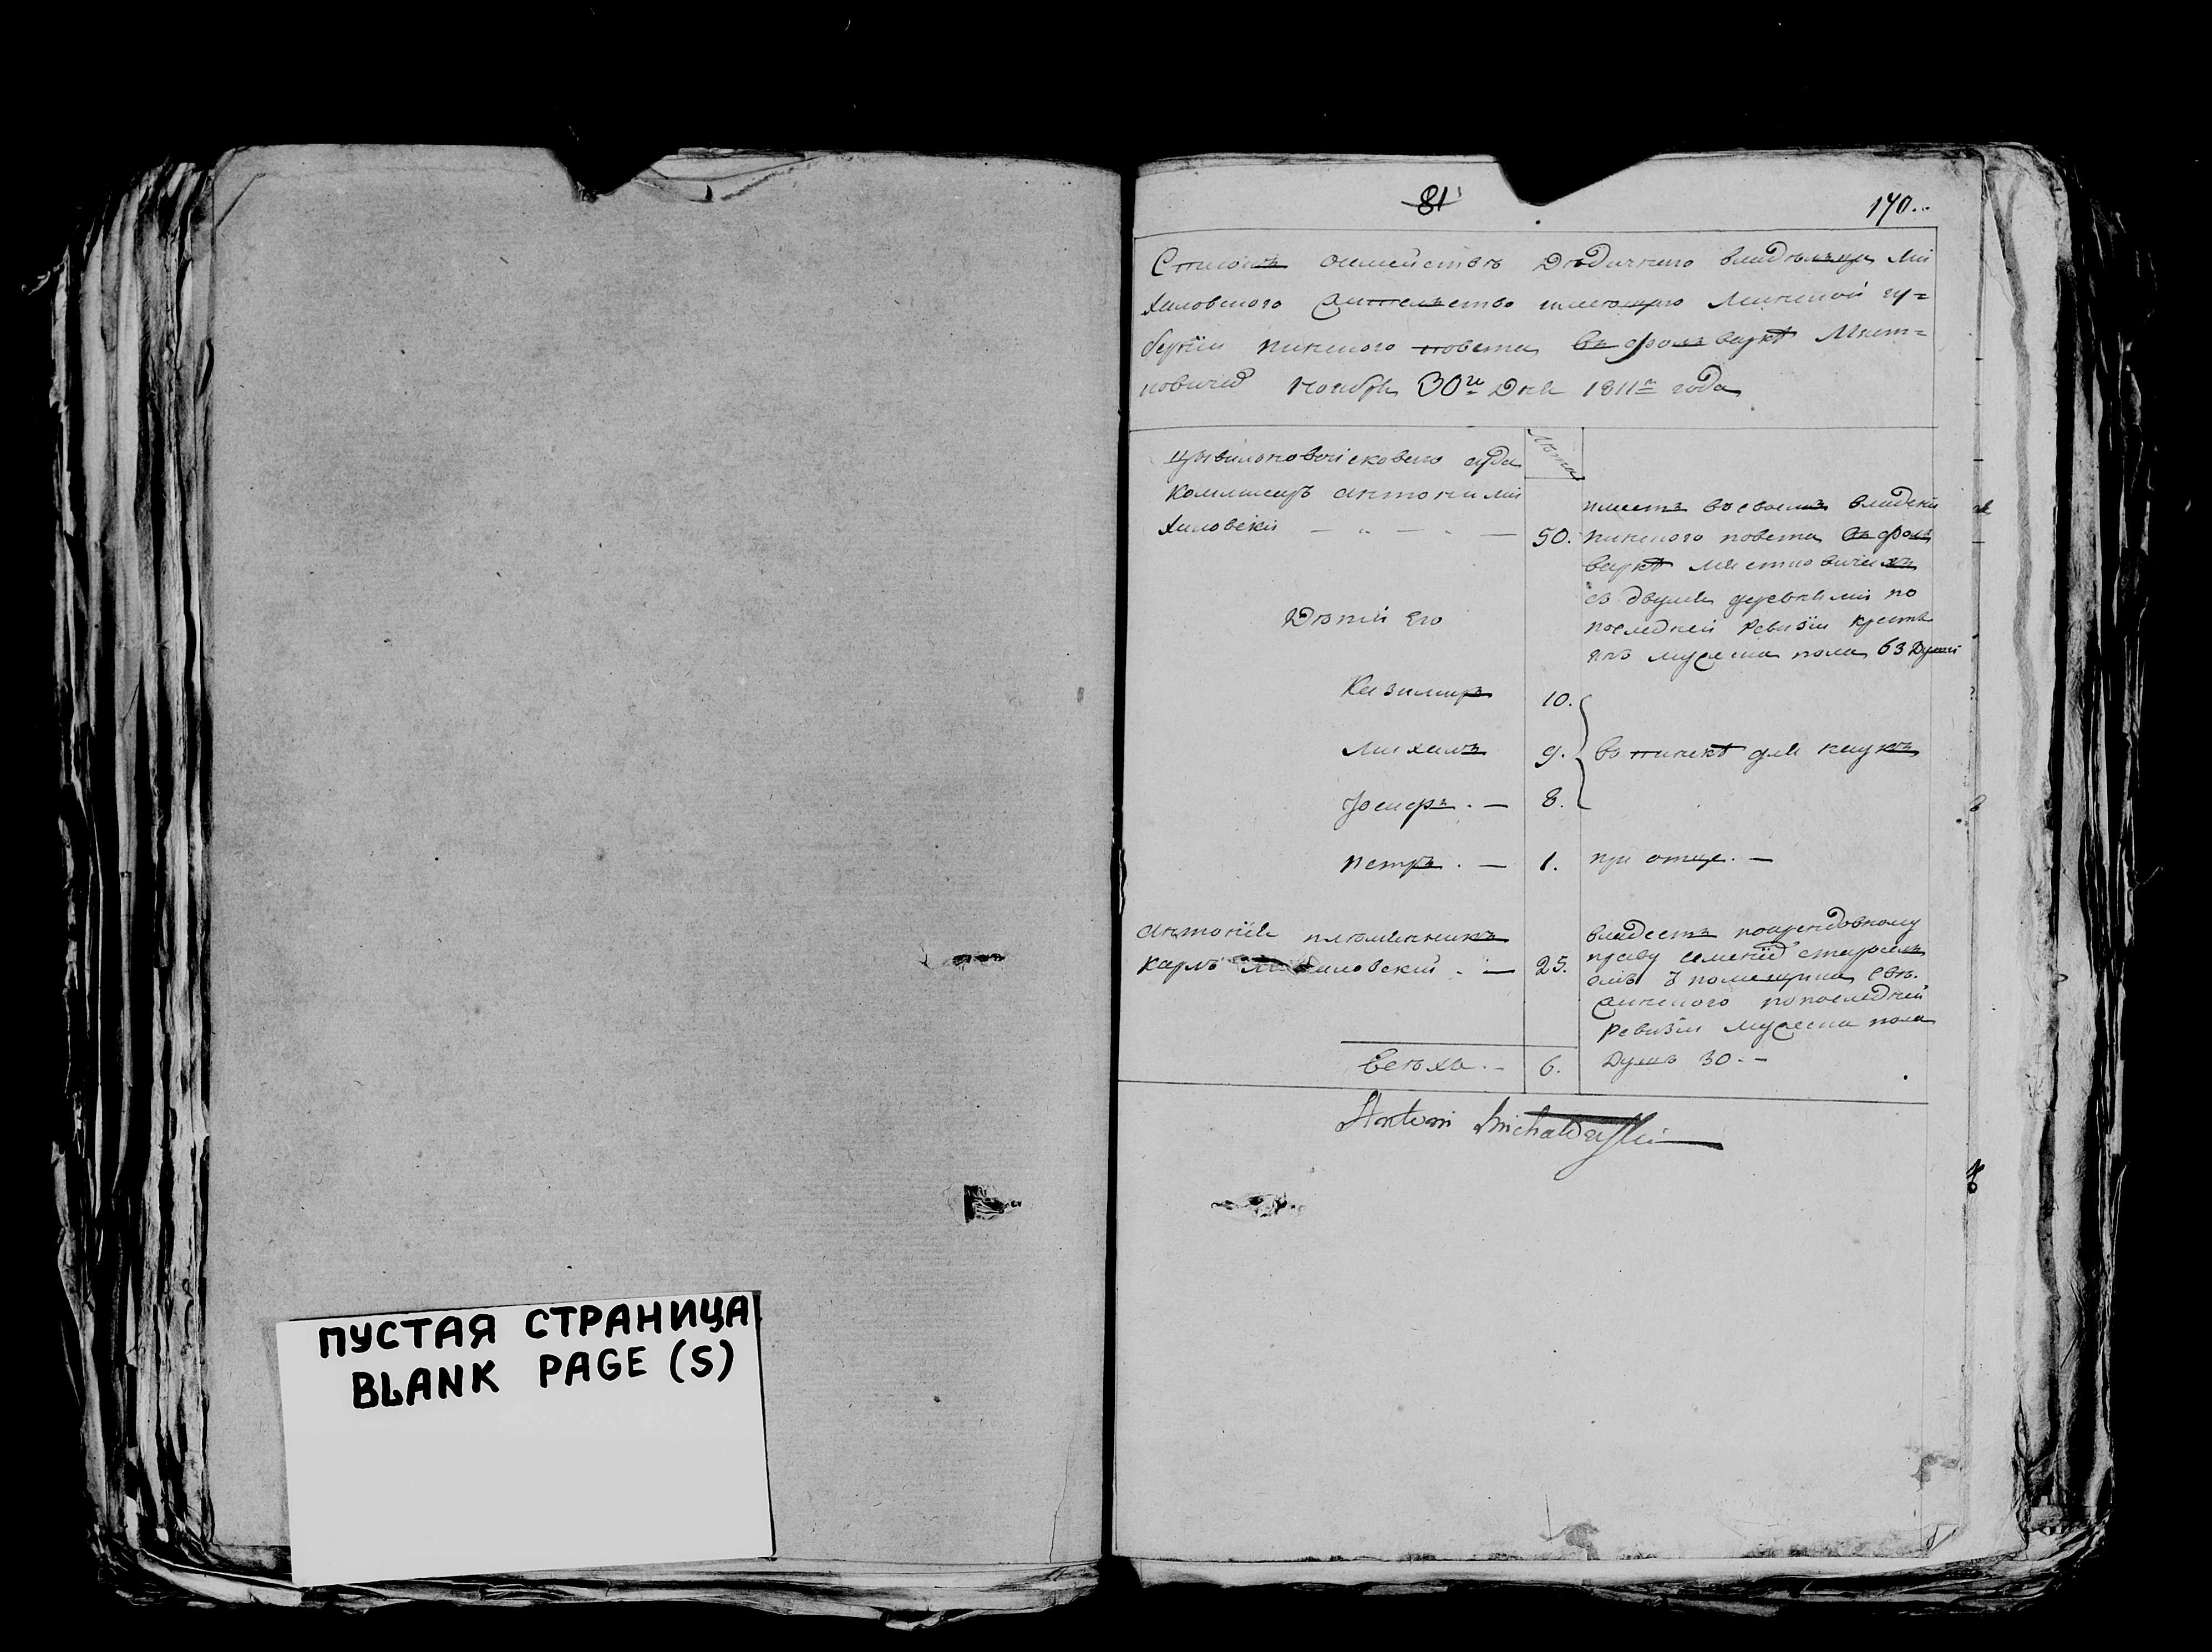 ПУСТАЯ СТРАНИЦА
BLANK PAGE (S)
81
170..
Списокъ осемействѣ Дѣдичнаго владѣльца Ми
халовского Жительство имеющаго Минской гу=
бернїи пинского повета въ фольваркѣ Мяст=
ковичах ноября 30го Дня 1811го года
Лѣта
Цывильновойсковаго суда
Коммисаръ Антони Ми
халовскїй
50.
имеетъ во своемъ владени
пинского повета въ фоль
варкѣ мястковичахъ
съ двумя деревнями по
последней ревизїи кресть
янъ мужеска пола 63 Души
Дѣтй Его
Казимиръ 10.
Михалъ 9. въ пинскѣ для наукъ
Јосифъ . — 8.
петръ . — 1. при отце . —
Антонїя плѣмянникъ
Карлъ Михаловский . — 25.
владеетъ поарендовному
праву
ского попоследней
ревизїи мужеска пола
Душъ 30 . —
Всѣхъ . — 6.
Antoni Michałowski